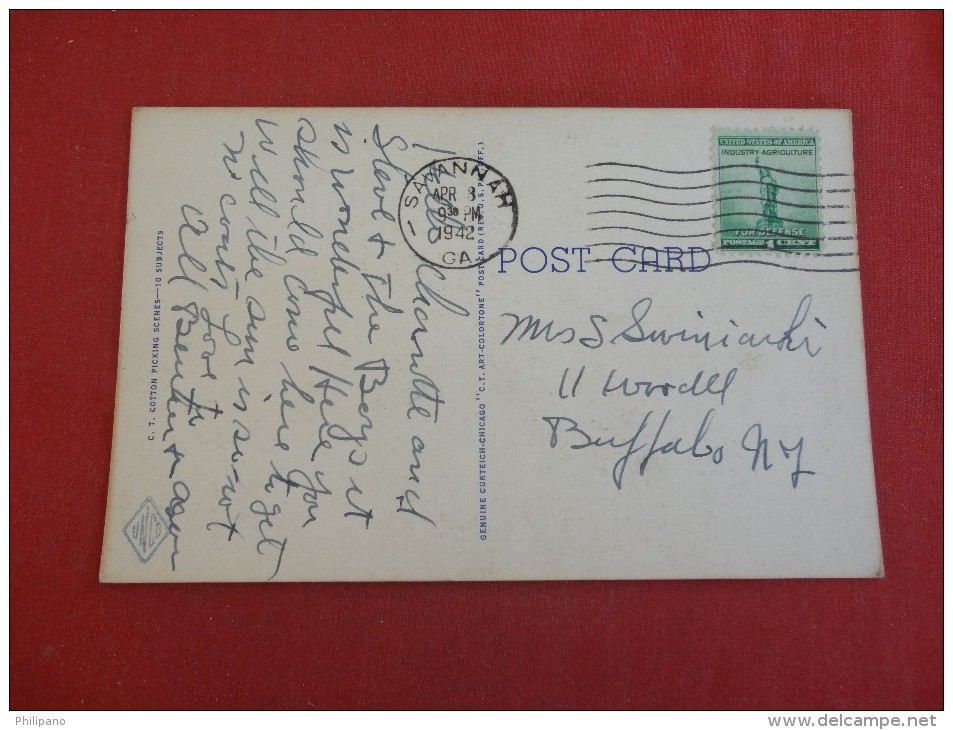 Hello Clarontte and
Steve + the Boys it
is wonderful Here you
should come here to get
Will the sun is so hot
Love to
all
C. T. COTTON PICKING SCENES—10 SUBJECTS
GENUINE CURTEICH-CHICAGO "C.T. ART-COLORTONE" POST CARD (REG. U.S. PAT. OFF.)
SAVANNAH
APR 8
9 30 PM
1942
GA.
UNITED STATES OF AMERICA
INDUSTRY-AGRICULTURE
FOR DEFENSE
POSTAGE 1 CENT
POST CARD
Mrs S Swiniarski
11 Woodell
Buffalo NY
Philipano
www.delcampe.net